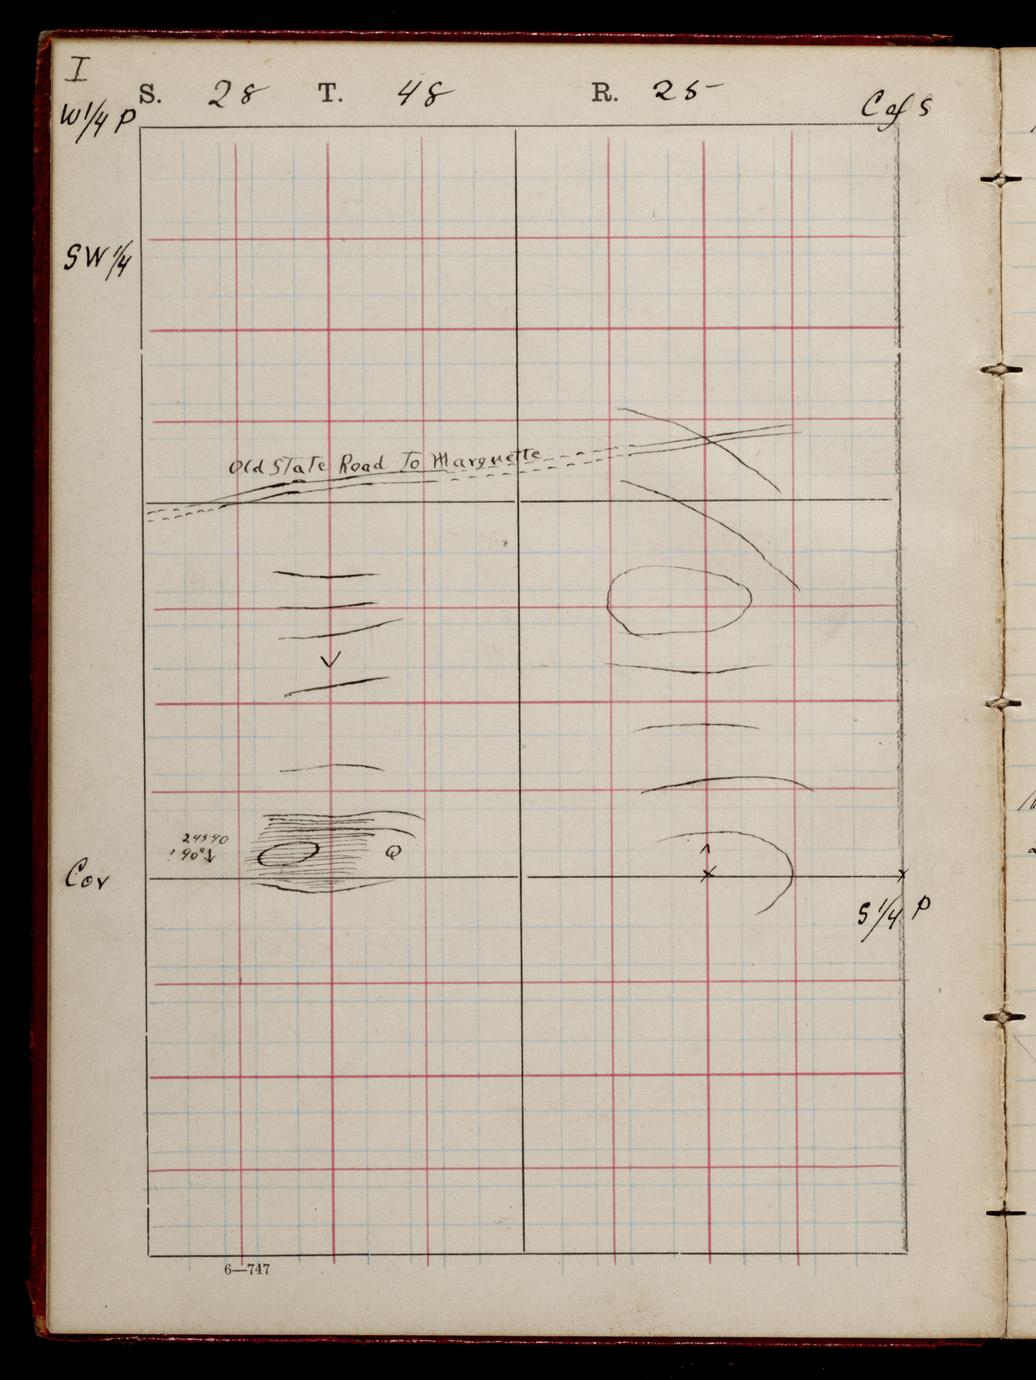 I
S. 28 T. 48 R. 25
W 1/4 P
C of S
SW 1/4
Old State Road To Marquette
24540
90°
Q
Cor
S 1/4 P
6—747